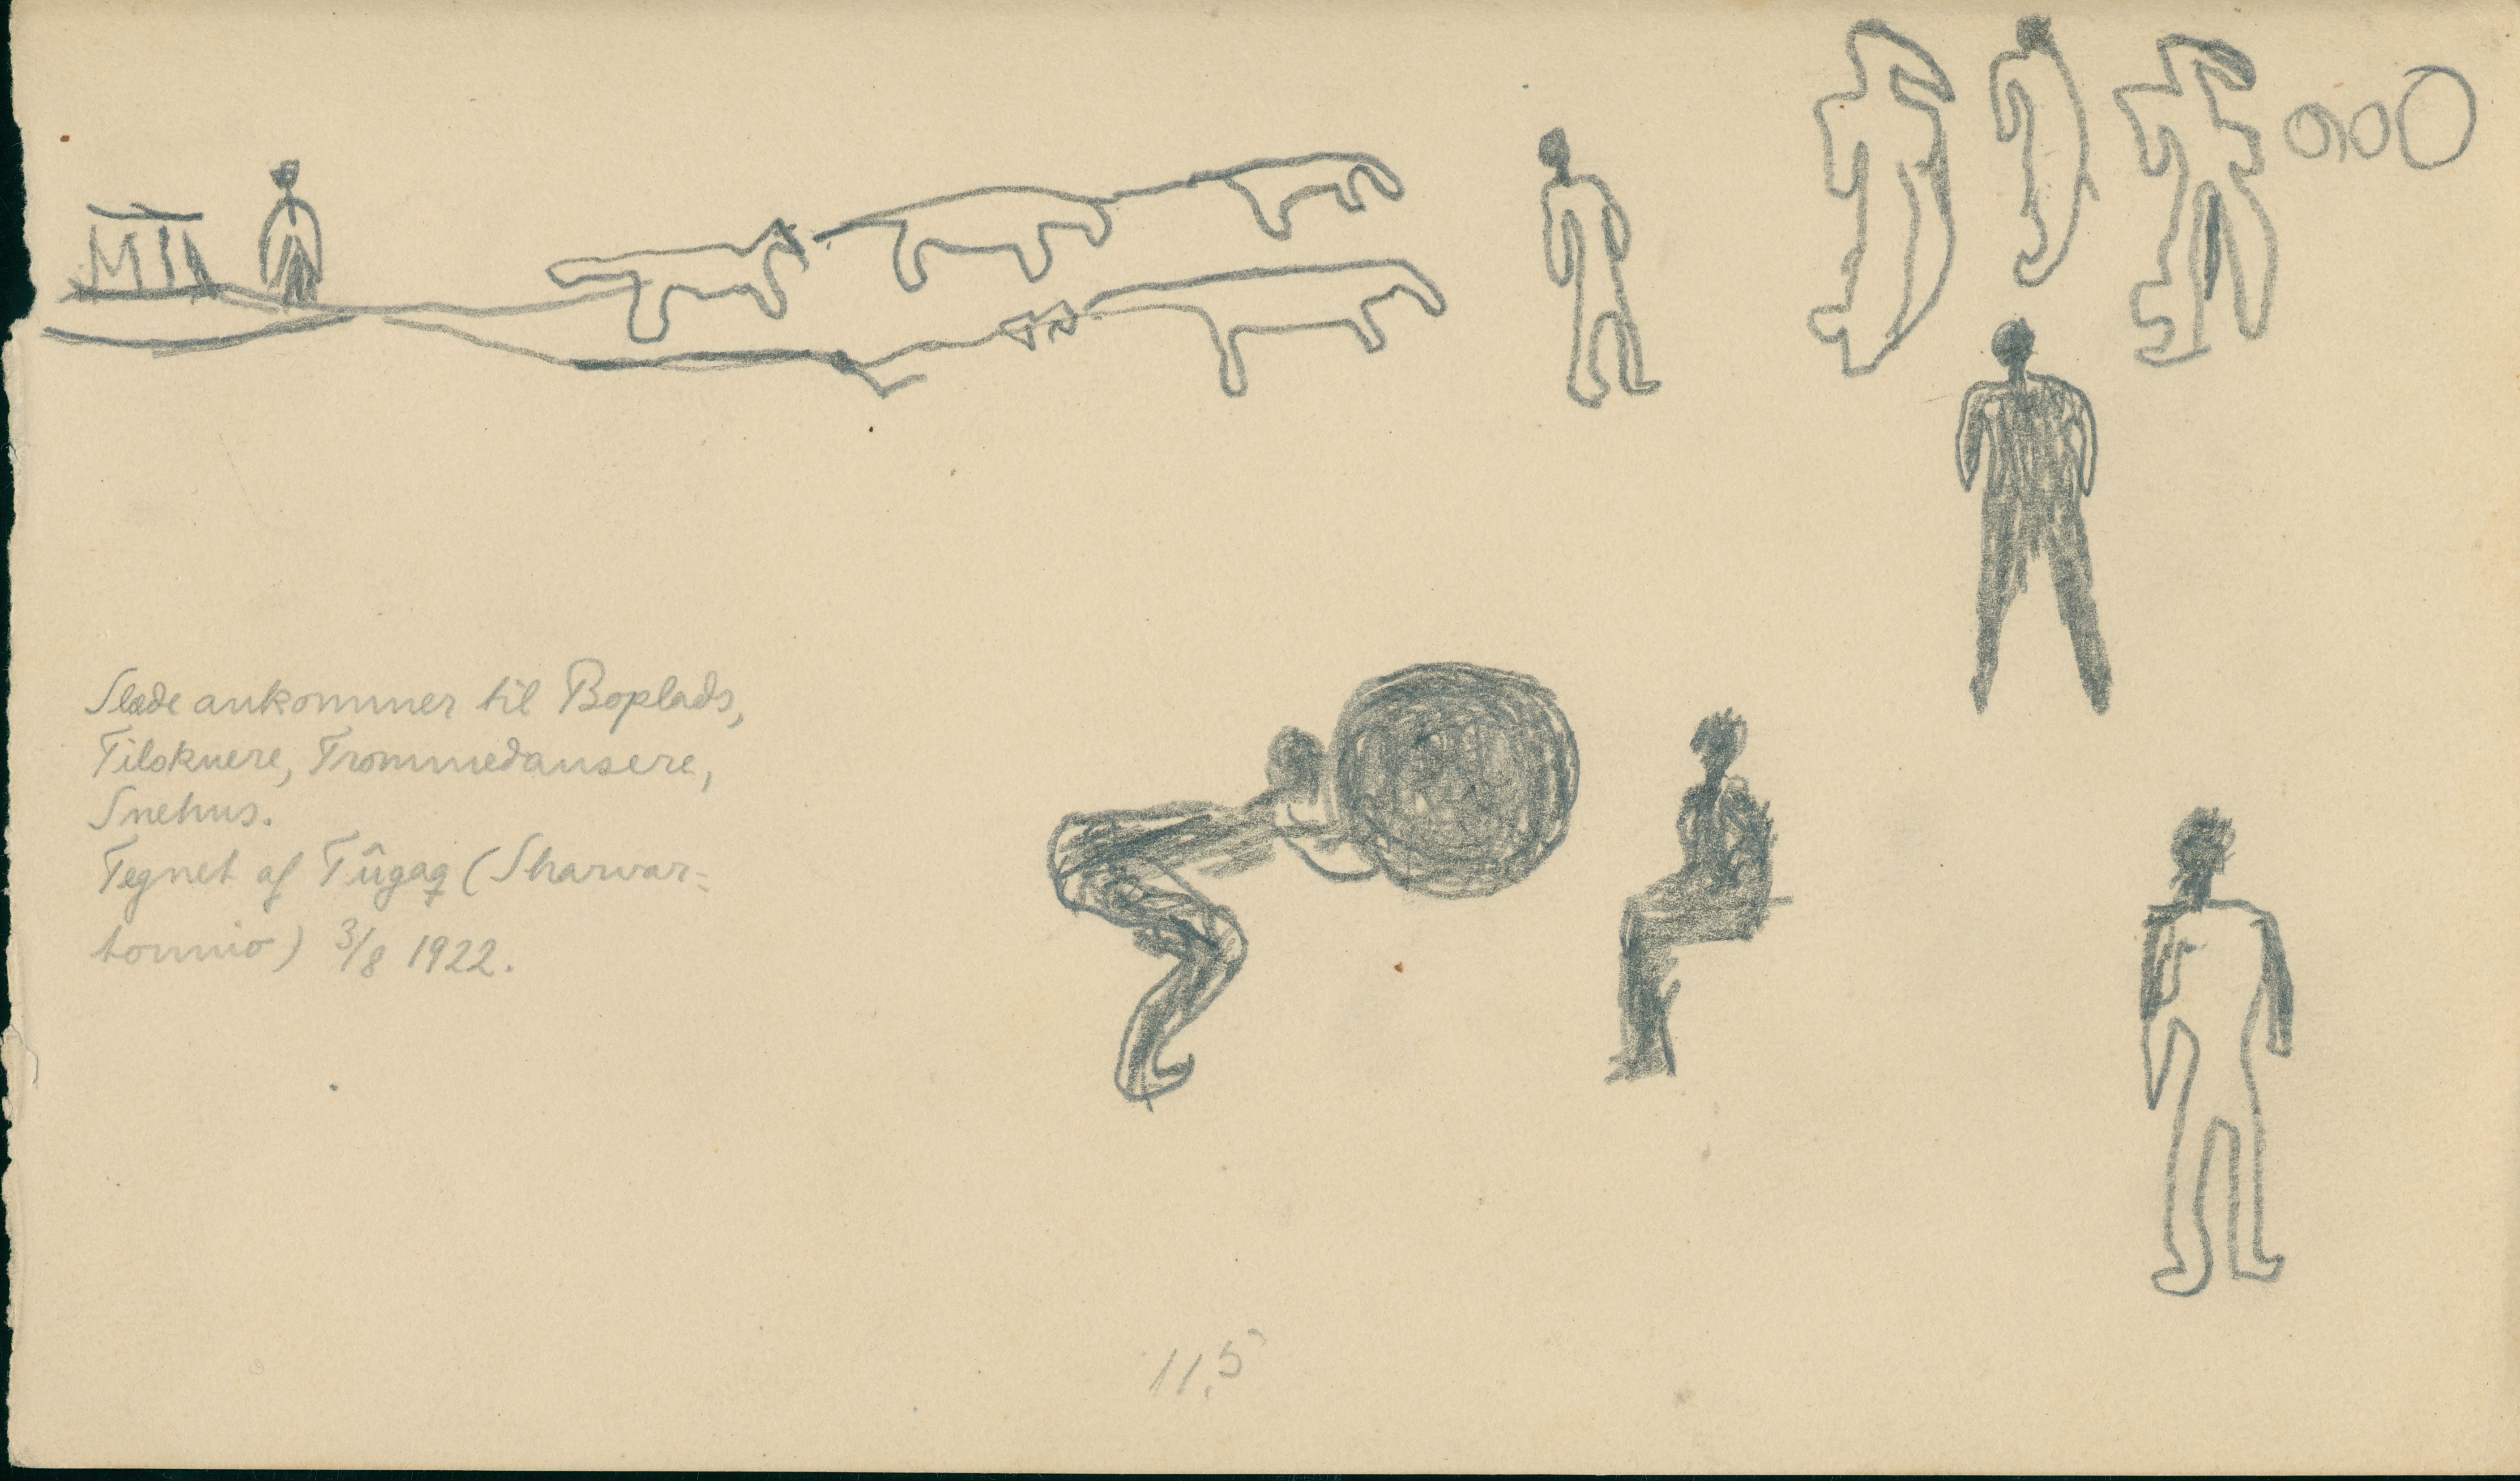 Slæde ankommer til Boplads,
Tilskuere, Trommedansere,
Snehus.
Tegnet af Tûgaq (Sharvar-
tormio) 3/8 1922.
11,5